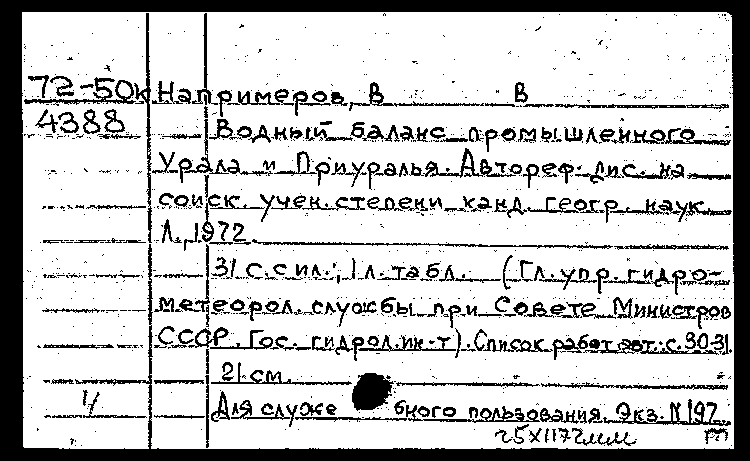 72-50к Напримеров, В В
4388 Водный баланс промышленного
Урала и Приуралья. Автореф. дис. на
соиск. учен. степени канд. геогр. наук
Л., 1972.
31 с. с ил.; 1 л. табл. (Гл. упр. гидро-
метеорол. службы при Совете Министров
СССР. Гос. гидрол. ин-т). Список работ авт.: с. 30-31
21 см.
Для служебного пользования. Экз. N 197
25XII72